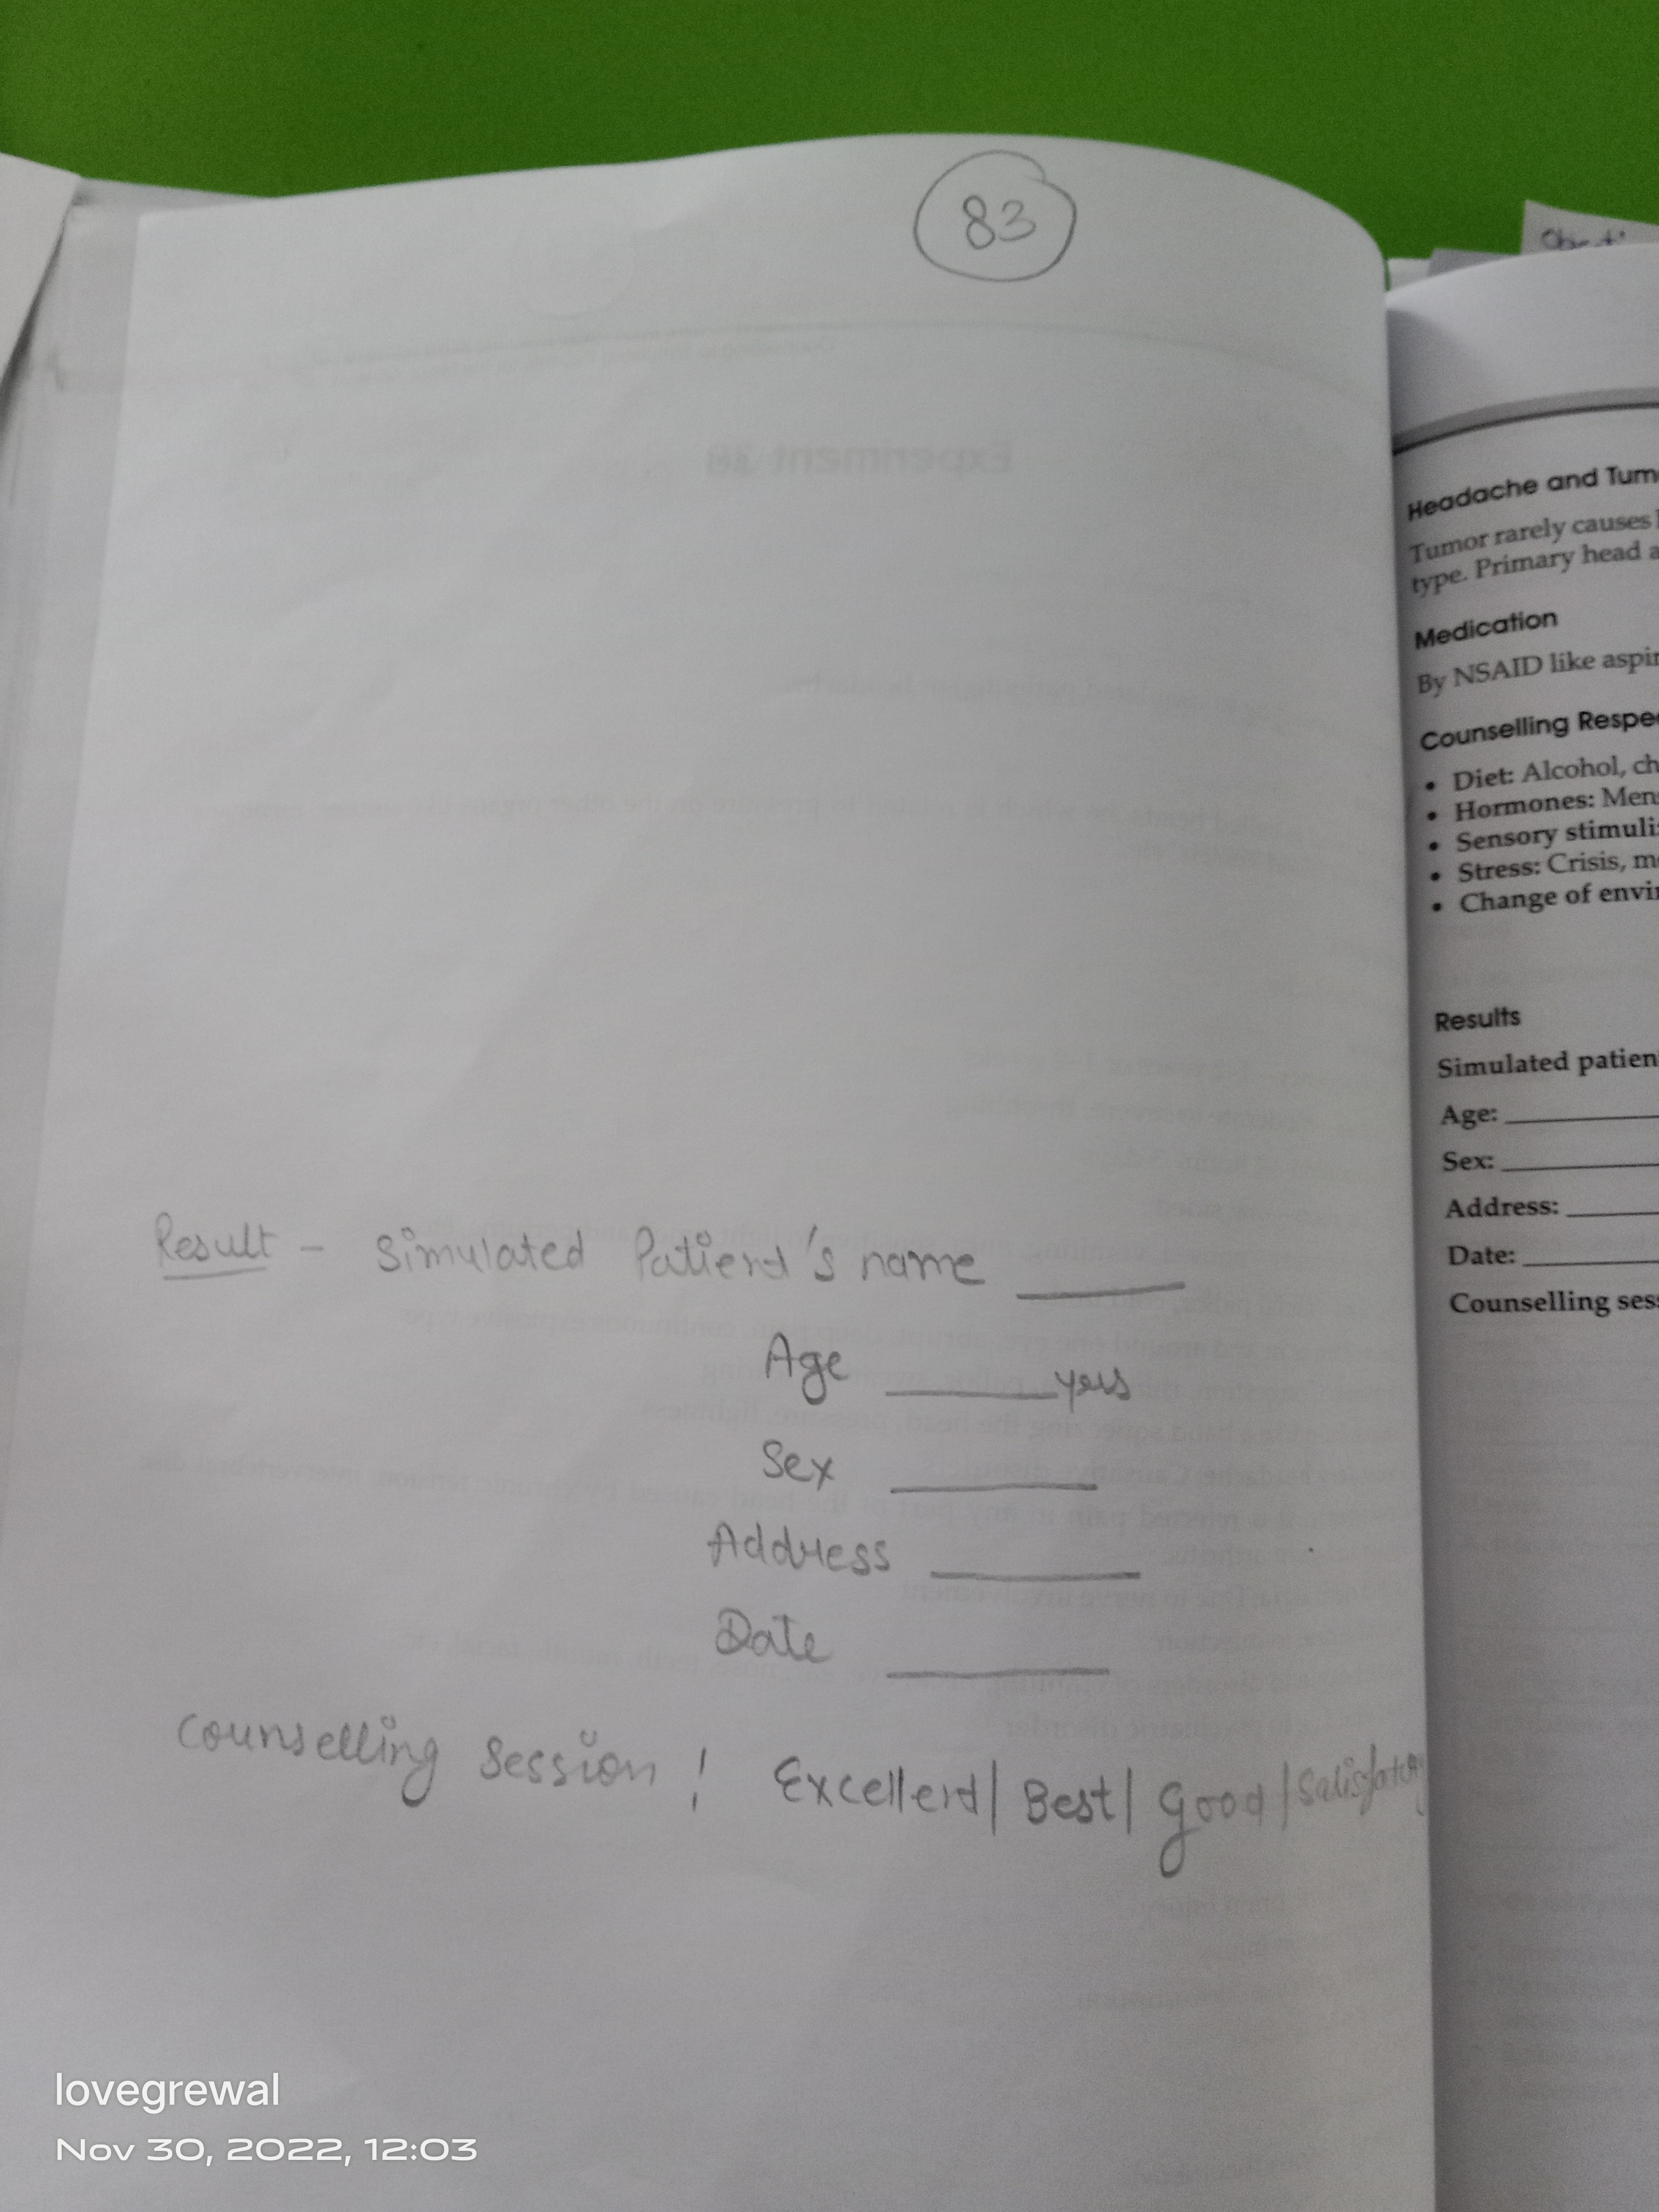 83
Result - Simulated Patient's name ____
Age ____yrs
Sex ____
Address ____
Date ____
Counselling Session ! Excellent/ Best/ Good /Satisfatory
Headache and Tum
Tumor rarely causes
type. Primary head a
Medication
By NSAID like aspir
Counselling Respe
• Diet: Alcohol, ch
• Hormones: Mens
• Sensory stimuli:
• Stress: Crisis, m
• Change of envir
Results
Simulated patien
Age: ____
Sex: ____
Address: ____
Date: ____
Counselling sess
lovegrewal
Nov 30, 2022, 12:03